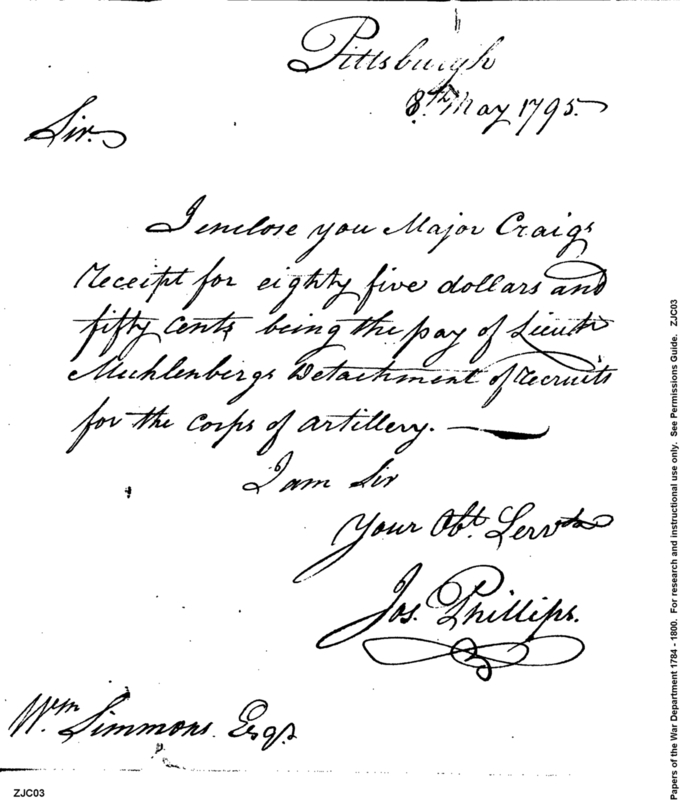 Pittsburgh
8th May 1795.
Sir.
I enclose you Major Craigs
receipt for eighty five dollars and
fifty cents being the pay of Lieut
Muhlenbergs Detachment of recruits
for the corps of artillery.
I am Sir
Your Obt. Servt
Jos. Phillips.
Wm Simmons Esqr.
ZJC03
Papers of the War Department 1784 - 1800. For research and instructional use only. See Permissions Guide. ZJC03